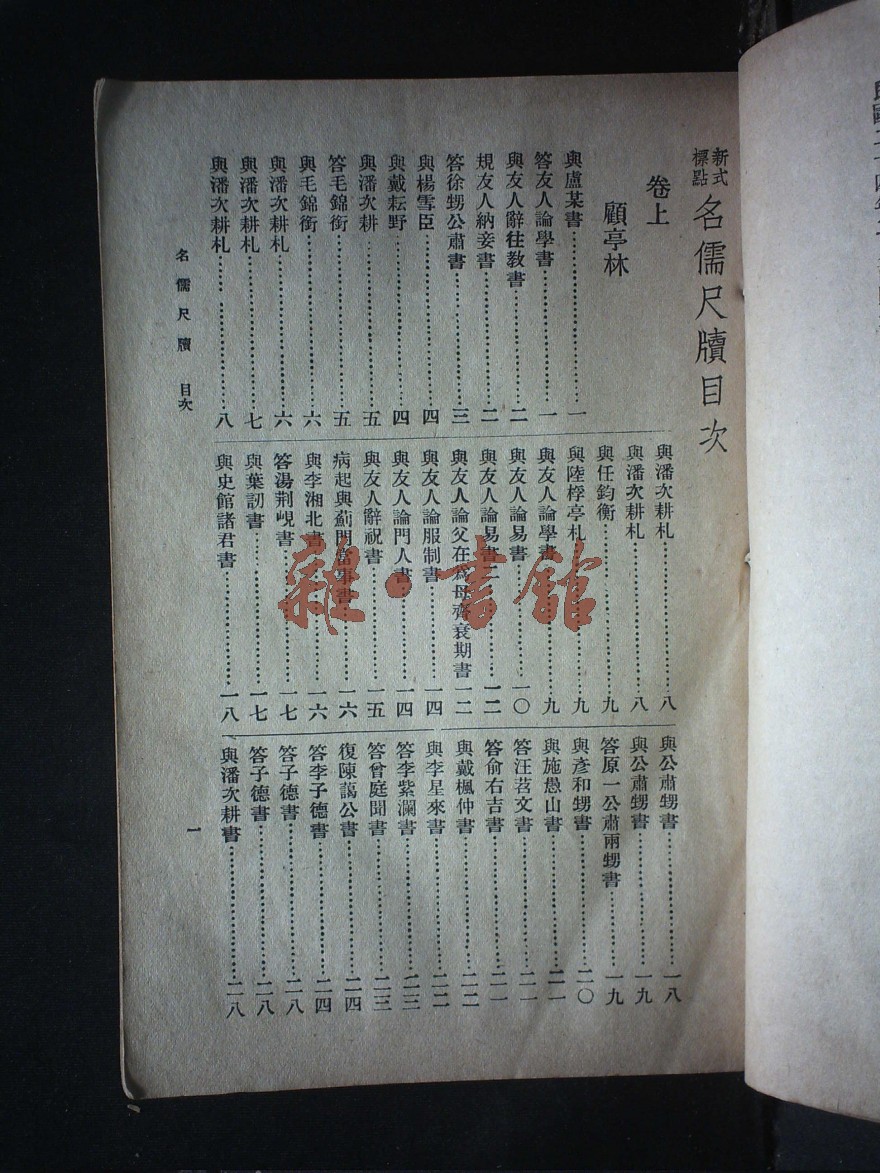 新式標點 名儒尺牘目次
卷上
顧亭林
與盧某書⋯⋯一
答友人論學書⋯⋯一
與友人辭往教書⋯⋯二
規友人納妾書⋯⋯二
答徐甥公肅書⋯⋯三
與楊雪臣⋯⋯四
與戴耘野⋯⋯四
與潘次耕⋯⋯五
答毛錦銜⋯⋯五
與毛錦銜⋯⋯六
與潘次耕札⋯⋯六
與潘次耕札⋯⋯七
與潘次耕札⋯⋯八
與潘次耕札⋯⋯八
與潘次耕札⋯⋯八
與任鈞衡⋯⋯九
與陸桴亭札⋯⋯九
與友人論學書⋯⋯九
與友人論易書⋯⋯一〇
與友人論易書二⋯⋯一二
與友人論父在爲母齊衰期書⋯⋯一二
與友人論服制書⋯⋯一四
與友人論門人書⋯⋯一四
與友人辭祝書⋯⋯一五
病起與薊門當事書⋯⋯一六
與李湘北書⋯⋯一六
答湯荆峴書⋯⋯一七
與葉訒書⋯⋯一七
與史館諸君書⋯⋯一八
與公肅甥書⋯⋯一八
與公肅甥書⋯⋯一九
答原一公肅兩甥書⋯⋯一九
與彥和甥書⋯⋯二〇
與施愚山書⋯⋯二一
答汪苕文書⋯⋯二一
答俞右吉書⋯⋯二一
與戴楓仲書⋯⋯二二
與李星來書⋯⋯二二
答李紫瀾書⋯⋯二三
答曾庭聞書⋯⋯二三
復陳藹公書⋯⋯二四
答李子德書⋯⋯二四
答子德書⋯⋯二八
答子德書⋯⋯二八
與潘次耕書⋯⋯二八
名儒尺牘 目次
一
雜·書館